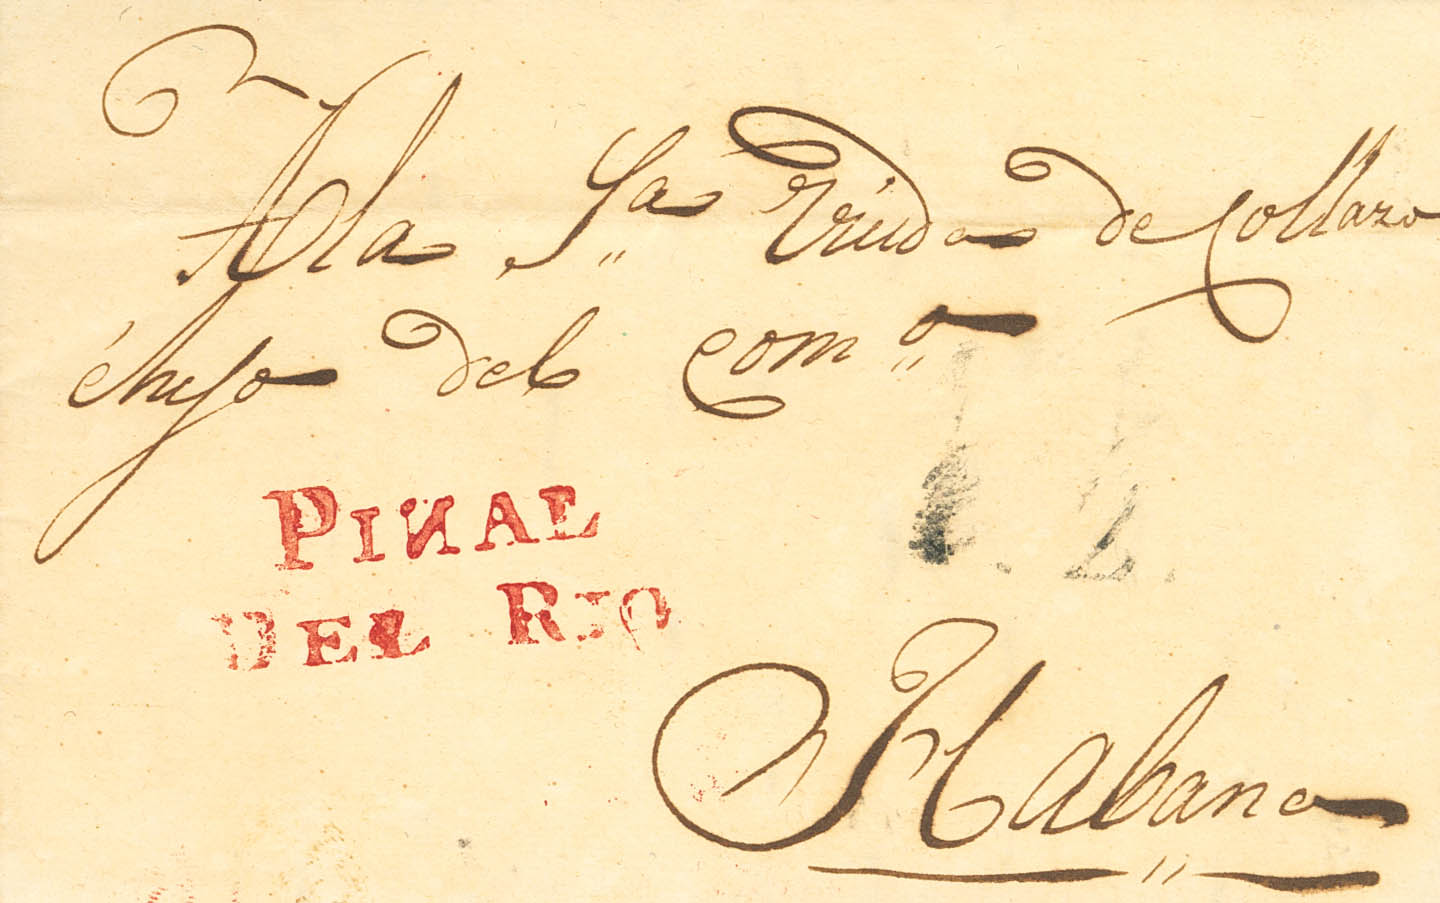 A la S.ª Viuda de Collazo
é hijo del Com.º
PINAL
DEL RIO
Habana